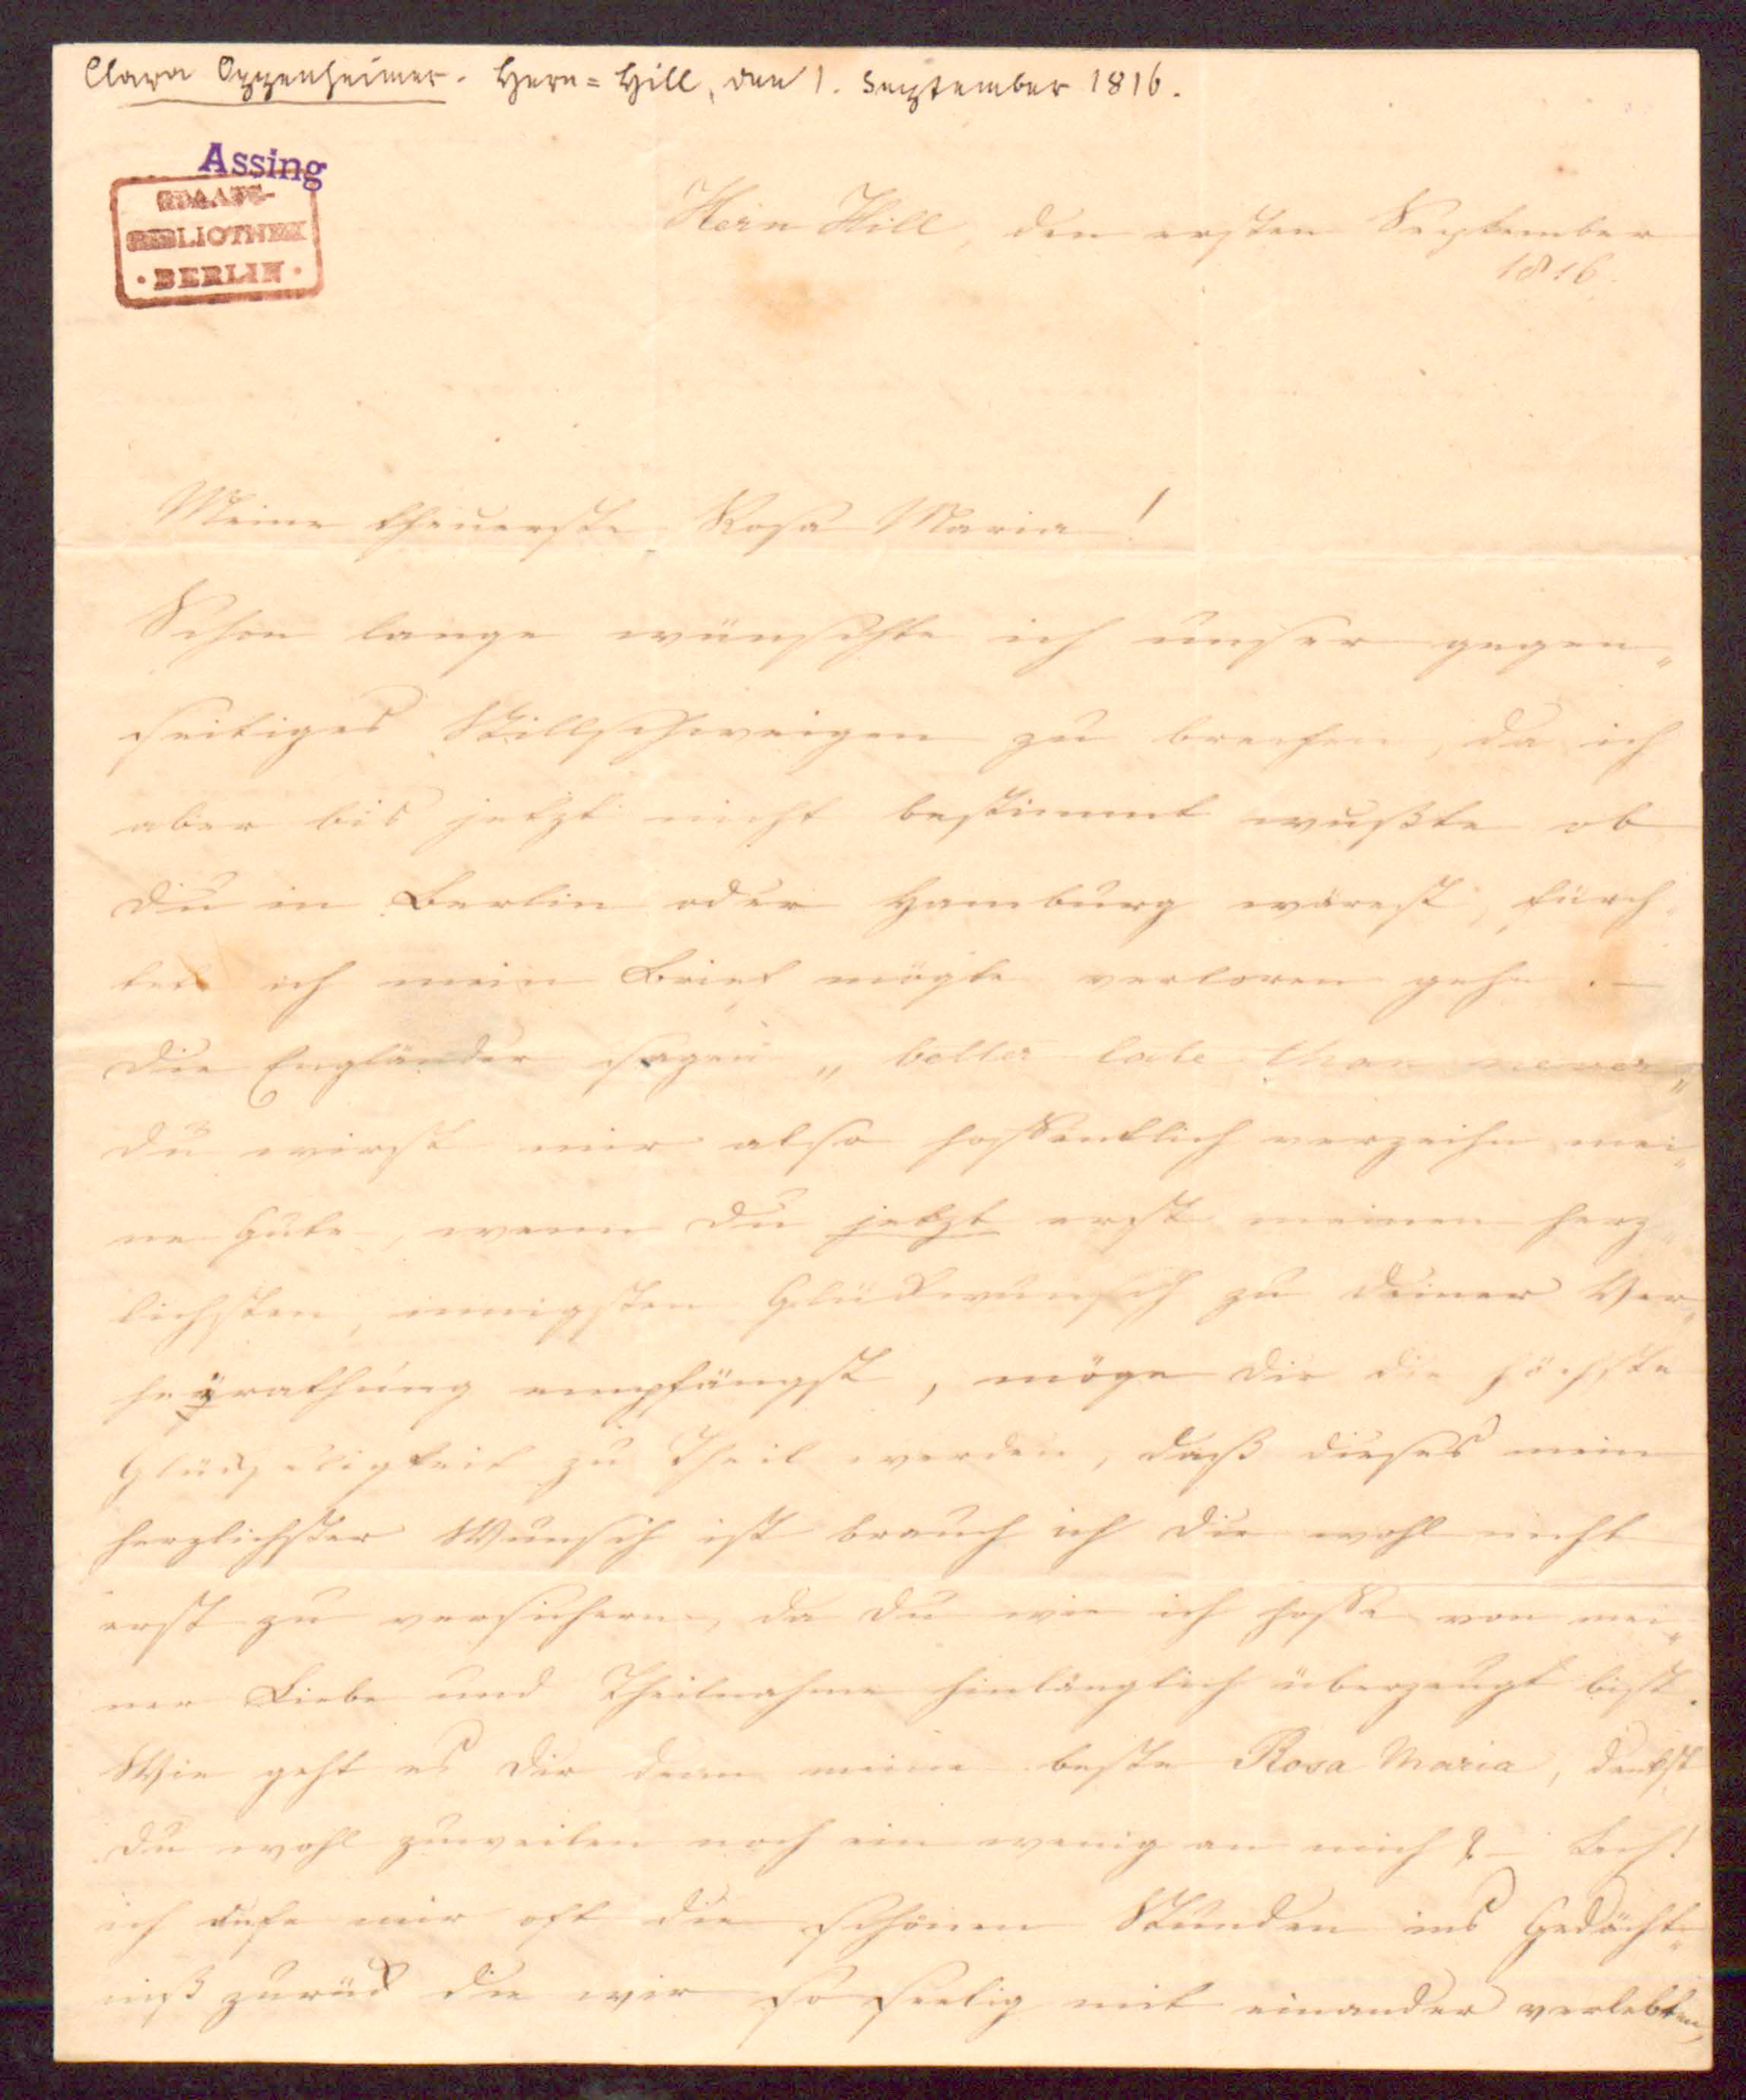 Clara Oppenheimer. Hern=Hill, den 1. September 1816.
Assing
STAATS-
BIBLIOTHEK
· BERLIN ·
Hern Hill, den ersten September
1816.
Meine theuerste Rosa Maria!
Schon lange wünschte ich unser gegen„
seitiges Stillschweigen zu brechen, da ich
aber bis jetzt nicht bestimmt wußte ob
du in Berlin oder Hamburg wärest, fürch„
tete ich mein Brief mögte verloren gehn. —
Die Engländer sagen „better late than never„
du wirst mir also hoffentlich verzeihn mei„
ne Gute, wenn Du jetzt erst meinen herz„
lichsten, innigsten Glückwunsch zu deiner Ver„
heyrathung empfängst, möge dir die höchste
Glückseligkeit zu Theil werden, daß dieses mein
herzlichster Wunsch ist brauch ich dir wohl nicht
erst zu versichern, da du wie ich hoffe von mei„
ner Liebe und Theilnahme hinlänglich überzeugt bist.
Wie geht es dir denn meine beste Rosa Maria, denkst
du wohl zuweilen noch ein wenig an mich? —
ich rufe mir oft die schönen Stunden ins Gedächt„
niß zurück die wir so seelig mit einander verlebten,